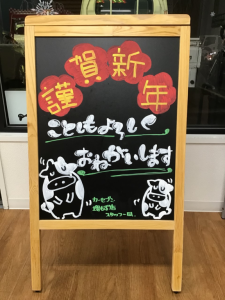 謹賀新年
ことしもよろしく
おねがいします
カーセブン
スタッフ一同